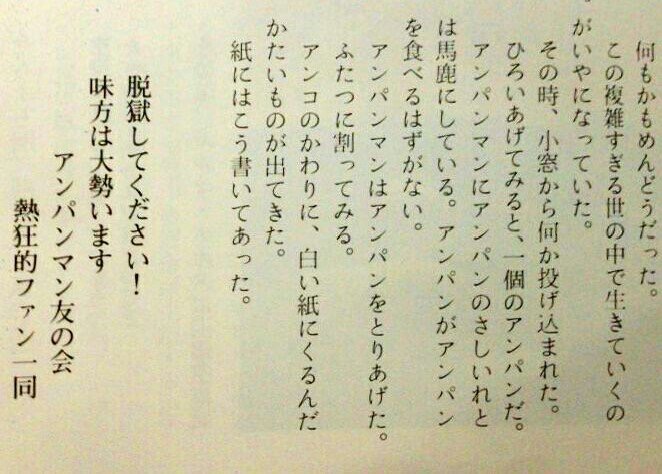 何もかもめんどうだった。
この複雑すぎる世の中で生きていくの
がいやになっていた。
その時、小窓から何か投げ込まれた。
ひろいあげてみると、一個のアンパンだ。
アンパンマンにアンパンのさしいれと
は馬鹿にしている。アンパンがアンパン
を食べるはずがない。
アンパンマンはアンパンをとりあげた。
ふたつに割ってみる。
アンコのかわりに、白い紙にくるんだ
かたいものが出てきた。
紙にはこう書いてあった。
脱獄してください！
味方は大勢います
アンパンマン友の会
熱狂的ファン一同